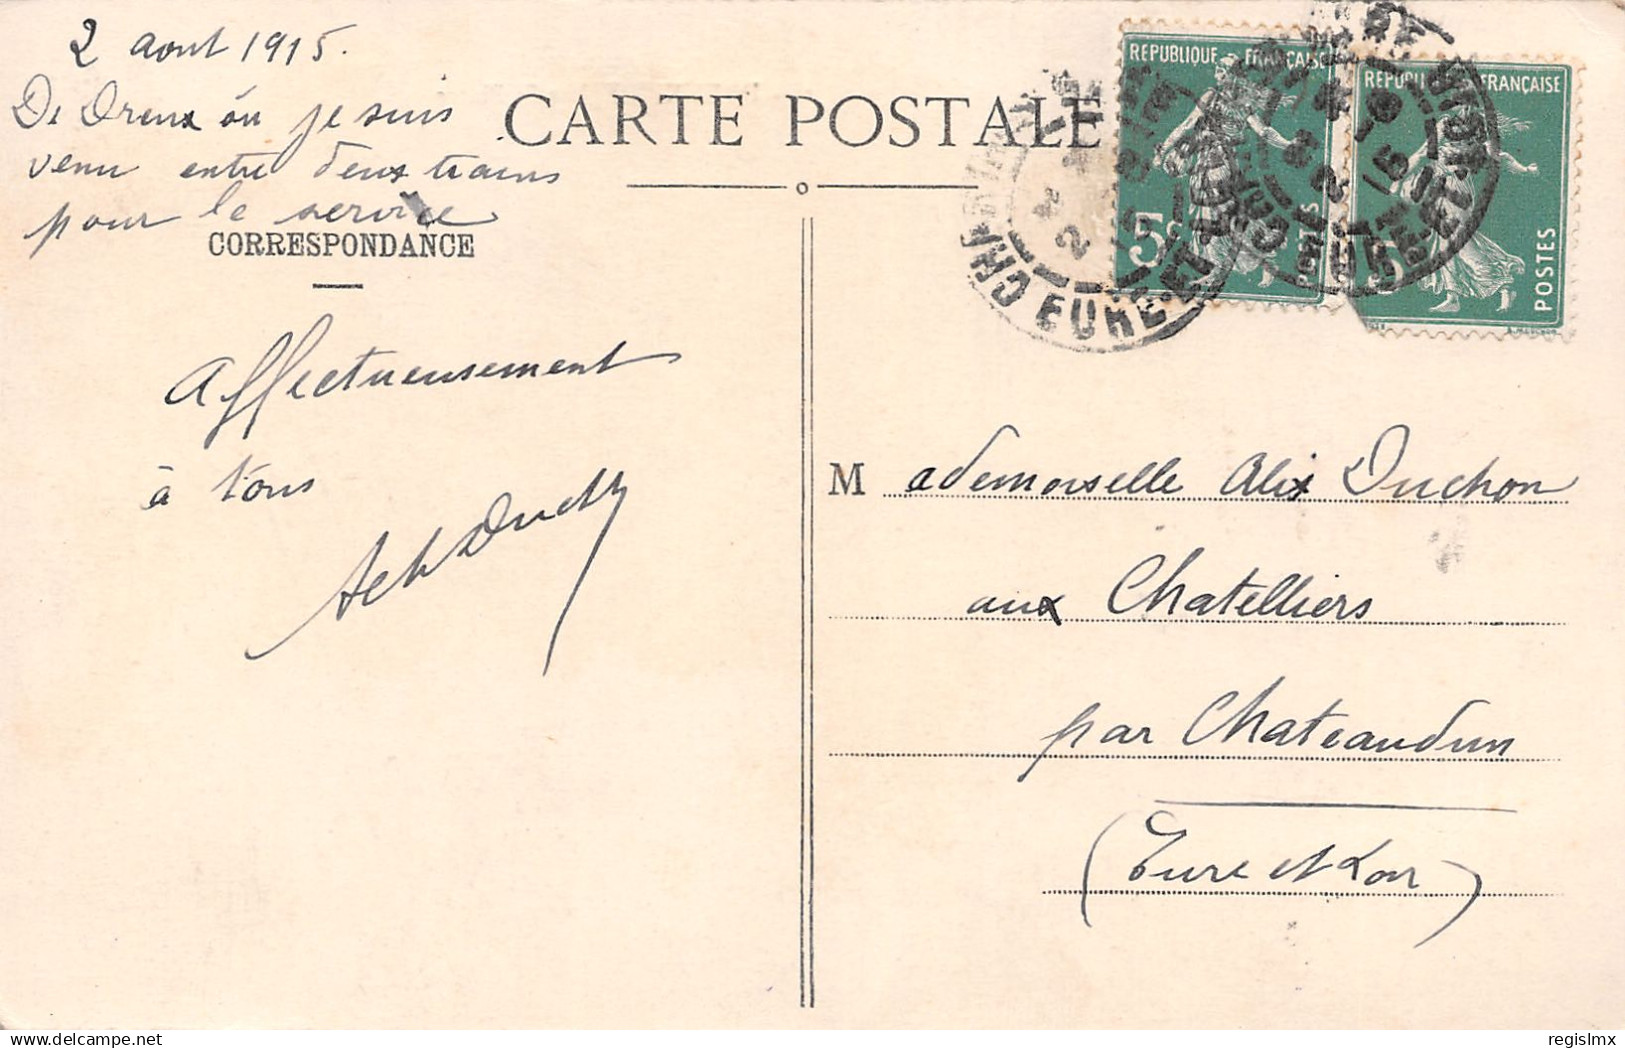 2 aout 1915.
De Dreux où je suis
venu entre deux trains
pour le service
CARTE POSTALE
CORRESPONDANCE
Affectueusement
à tous
REPUBLIQUE FRANÇAISE
5c
POSTES
REPUBLIQUE FRANÇAISE
POSTES
EURE-ET-L
Mademoiselle Alix Duchon
aux Chatelliers
par Chateaudun
(Eure et Loir)
regislmx